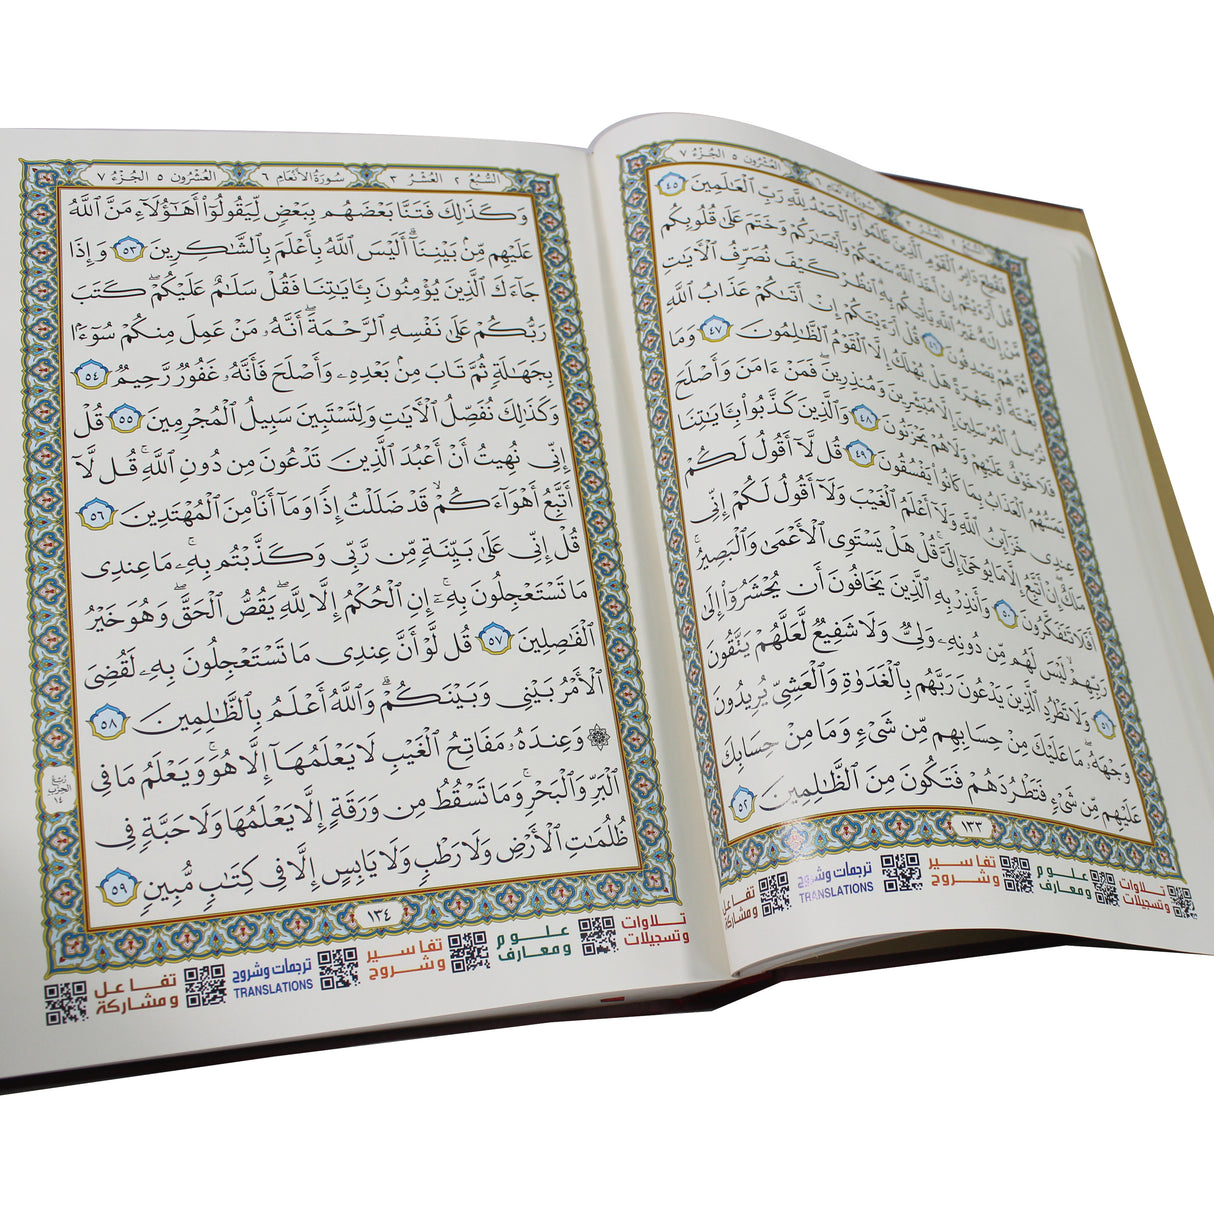 العشرون ٥ الجزء ٧
سورة الأنعام ٦
فَقُطِعَ دَابِرُ ٱلْقَوْمِ ٱلَّذِينَ ظَلَمُوا۟ ۚ وَٱلْحَمْدُ لِلَّهِ رَبِّ ٱلْعَٰلَمِينَ ٤٥
قُلْ أَرَءَيْتُمْ إِنْ أَخَذَ ٱللَّهُ سَمْعَكُمْ وَأَبْصَٰرَكُمْ وَخَتَمَ عَلَىٰ قُلُوبِكُم
مَّنْ إِلَٰهٌ غَيْرُ ٱللَّهِ يَأْتِيكُم بِهِ ۗ ٱنظُرْ كَيْفَ نُصَرِّفُ ٱلْءَايَٰتِ
ثُمَّ هُمْ يَصْدِفُونَ ٤٦ قُلْ أَرَءَيْتَكُمْ إِنْ أَتَىٰكُمْ عَذَابُ ٱللَّهِ
بَغْتَةً أَوْ جَهْرَةً هَلْ يُهْلَكُ إِلَّا ٱلْقَوْمُ ٱلظَّٰلِمُونَ ٤٧ وَمَا
نُرْسِلُ ٱلْمُرْسَلِينَ إِلَّا مُبَشِّرِينَ وَمُنذِرِينَ ۖ فَمَنْ ءَامَنَ وَأَصْلَحَ
فَلَا خَوْفٌ عَلَيْهِمْ وَلَا هُمْ يَحْزَنُونَ ٤٨ وَٱلَّذِينَ كَذَّبُوا۟ بِـَٔايَٰتِنَا
يَمَسُّهُمُ ٱلْعَذَابُ بِمَا كَانُوا۟ يَفْسُقُونَ ٤٩ قُل لَّآ أَقُولُ لَكُمْ
عِندِى خَزَآئِنُ ٱللَّهِ وَلَآ أَعْلَمُ ٱلْغَيْبَ وَلَآ أَقُولُ لَكُمْ إِنِّى
مَلَكٌ ۖ إِنْ أَتَّبِعُ إِلَّا مَا يُوحَىٰٓ إِلَىَّ ۚ قُلْ هَلْ يَسْتَوِى ٱلْأَعْمَىٰ وَٱلْبَصِيرُ ۚ
أَفَلَا تَتَفَكَّرُونَ ٥٠ وَأَنذِرْ بِهِ ٱلَّذِينَ يَخَافُونَ أَن يُحْشَرُوٓا۟ إِلَىٰ
رَبِّهِمْ ۙ لَيْسَ لَهُم مِّن دُونِهِۦ وَلِىٌّ وَلَا شَفِيعٌ لَّعَلَّهُمْ يَتَّقُونَ
٥١ وَلَا تَطْرُدِ ٱلَّذِينَ يَدْعُونَ رَبَّهُم بِٱلْغَدَوٰةِ وَٱلْعَشِىِّ يُرِيدُونَ
وَجْهَهُۥ ۖ مَا عَلَيْكَ مِنْ حِسَابِهِم مِّن شَىْءٍ وَمَا مِنْ حِسَابِكَ
عَلَيْهِم مِّن شَىْءٍ فَتَطْرُدَهُمْ فَتَكُونَ مِنَ ٱلظَّٰلِمِينَ ٥٢
١٣٣
تلاوات وتسجيلات
علوم ومعارف
تفاسير وشروح
ترجمات وشروح
TRANSLATIONS
تفاعل ومشاركة
السبع ٢ العشر ٣ سورة الأنعام ٦ العشرون ٥ الجزء ٧
وَكَذَٰلِكَ فَتَنَّا بَعْضَهُم بِبَعْضٍ لِّيَقُولُوٓا۟ أَهَٰٓؤُلَآءِ مَنَّ ٱللَّهُ
عَلَيْهِم مِّنۢ بَيْنِنَآ ۗ أَلَيْسَ ٱللَّهُ بِأَعْلَمَ بِٱلشَّٰكِرِينَ ٥٣ وَإِذَا
جَآءَكَ ٱلَّذِينَ يُؤْمِنُونَ بِـَٔايَٰتِنَا فَقُلْ سَلَٰمٌ عَلَيْكُمْ ۖ كَتَبَ
رَبُّكُمْ عَلَىٰ نَفْسِهِ ٱلرَّحْمَةَ ۖ أَنَّهُۥ مَنْ عَمِلَ مِنكُمْ سُوٓءًۢا
بِجَهَٰلَةٍ ثُمَّ تَابَ مِنۢ بَعْدِهِۦ وَأَصْلَحَ فَأَنَّهُۥ غَفُورٌ رَّحِيمٌ ٥٤
وَكَذَٰلِكَ نُفَصِّلُ ٱلْءَايَٰتِ وَلِتَسْتَبِينَ سَبِيلُ ٱلْمُجْرِمِينَ ٥٥ قُلْ
إِنِّى نُهِيتُ أَنْ أَعْبُدَ ٱلَّذِينَ تَدْعُونَ مِن دُونِ ٱللَّهِ ۚ قُل لَّآ
أَتَّبِعُ أَهْوَآءَكُمْ ۙ قَدْ ضَلَلْتُ إِذًا وَمَآ أَنَا۠ مِنَ ٱلْمُهْتَدِينَ ٥٦
قُلْ إِنِّى عَلَىٰ بَيِّنَةٍ مِّن رَّبِّى وَكَذَّبْتُم بِهِۦ ۚ مَا عِندِى
مَا تَسْتَعْجِلُونَ بِهِۦٓ ۚ إِنِ ٱلْحُكْمُ إِلَّا لِلَّهِ ۖ يَقُصُّ ٱلْحَقَّ ۖ وَهُوَ خَيْرُ
ٱلْفَٰصِلِينَ ٥٧ قُل لَّوْ أَنَّ عِندِى مَا تَسْتَعْجِلُونَ بِهِۦ لَقُضِىَ
ٱلْأَمْرُ بَيْنِى وَبَيْنَكُمْ ۗ وَٱللَّهُ أَعْلَمُ بِٱلظَّٰلِمِينَ ٥٨
۞ وَعِندَهُۥ مَفَاتِحُ ٱلْغَيْبِ لَا يَعْلَمُهَآ إِلَّا هُوَ ۚ وَيَعْلَمُ مَا فِى
ٱلْبَرِّ وَٱلْبَحْرِ ۚ وَمَا تَسْقُطُ مِن وَرَقَةٍ إِلَّا يَعْلَمُهَا وَلَا حَبَّةٍ فِى
ظُلُمَٰتِ ٱلْأَرْضِ وَلَا رَطْبٍ وَلَا يَابِسٍ إِلَّا فِى كِتَٰبٍ مُّبِينٍ ٥٩
ربع
الحزب
١٤
١٣٤
تلاوات وتسجيلات
علوم ومعارف
تفاسير وشروح
ترجمات وشروح
TRANSLATIONS
تفاعل ومشاركة